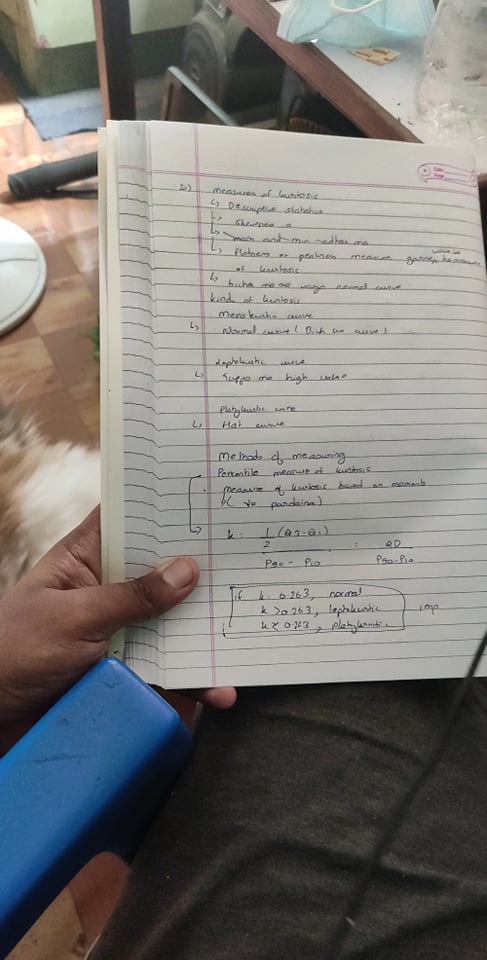 Date
Page
20) measures of kurtosis
↳ Descriptive statistics
↳ Skewness
↳ mean and
↳ flatness or peakness measure
of kurtosis
↳ bicha ma normal curve
kinds of kurtosis
Mesokurtic curve
↳ Normal curve (
Leptokurtic curve
↳ high
Platykurtic curve
↳ flat curve
Methods of measuring
Percentile measure of kurtosis
measure of kurtosis based on moments
( yo pardaina)
k = 1/2 (Q3-Q1) = QD
P90 - P10 P90-P10
if k = 0.263, normal
k > 0.263, leptokurtic imp
k < 0.263, platykurtic